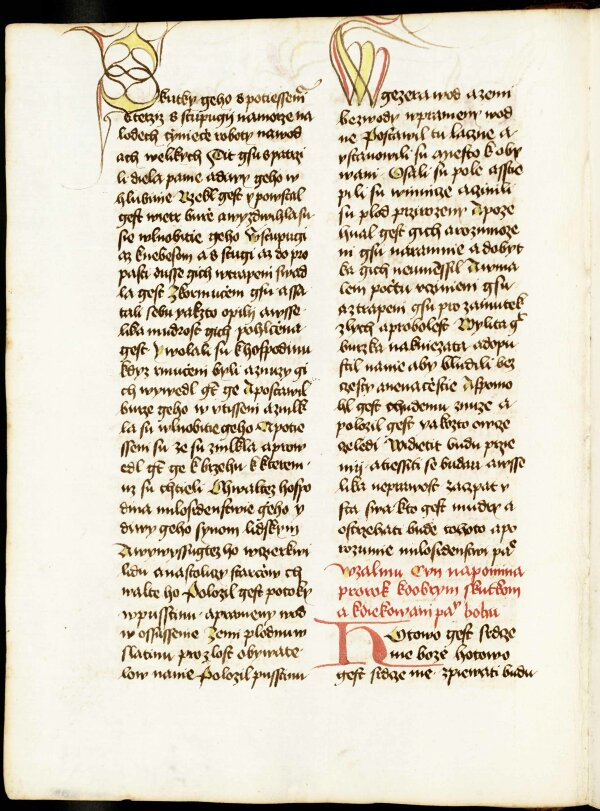 Skutky geho s potiessenim
S kterziz s stupugij na morze na
lodech cziniece roboty na wod
ach welikych Tit gsu spatrzi
li diela panie a diwy geho w
hlubinie Rzekl gest y powstal
gest wietr burze a wyzdwihla su
sie wlnobitie geho Wstupugi
az k nebesom a sstugi az do pro
pasti dusse gich w trapeni swad
la gest Zkormuceni gsu a ssa
tali sebu yakzto opily a wsse
lika mudrost gich pohlcena
gest Y wolali su k hospodinu
kdyz rmuceni byli a z nuzy gi
ch wywedl gt ge A postawil
burze geho w vtisseni a zmlk
la su wlnobitie geho A potie
sseni su ze su zmlkla a prow
edl gt ge k brzehu k kterem
uz su chtieli Chwaltez hospo
dina milosidenstwie geho y
diwy geho synom lidskym
A wywyssugtez ho w czerkwi
lidu a na stoliczi starcow ch
walte ho Polozil gest potoky
w pusstinu a prameny wod
w ossussenie Zemi plodnu w
slatinu pro zlost obywate
low na nie Polozil pusstinu
W gezera wod a zemi
bez wody w prameny wod
ne Postawil tu laczne a
vstanowili su miesto k oby
wani Osali su pole a sstie
pili su winnize a zinili
su plod przirozeny A poze
hnal gest gich a rozmnoze
ni gsu naramnie a dobyt
ka gich neumenssil A w ma
lem pocztu vczineni gsu
a ztrapeni gsu pro zamutek
zlych a probolest Wylita gt
hutzka na kniezata a dopu
stil na nie aby bludili bez
czesty a ne na czestie A spomo
hl gest chudemu z nuze a
polozil gest yakozto owcze
czeledi Widietit budu prze
mij a tiessiti se budau a wsse
lika neprawost zaczpat v
sta swa kto gest mudry a
ostrzehati bude tohoto a po
rozumie milosidenstwi pa͞
W zalmu Cvii napomina
prorok k dobrym skutkom
a k diekowani pa͞ bohu
Hotowo gest srdcze
me bozie hotowo
gest srdcze me zpiewati budu